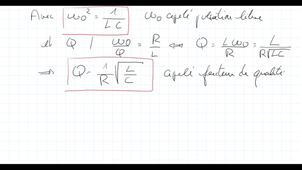 Avec ω₀² = 1/LC ω₀ appelé pulsation propre
et Q | ω₀/Q = R/L ⟺ Q = Lω₀/R = L/R√LC
⟹ Q = 1/R √L/C appelé facteur de qualité